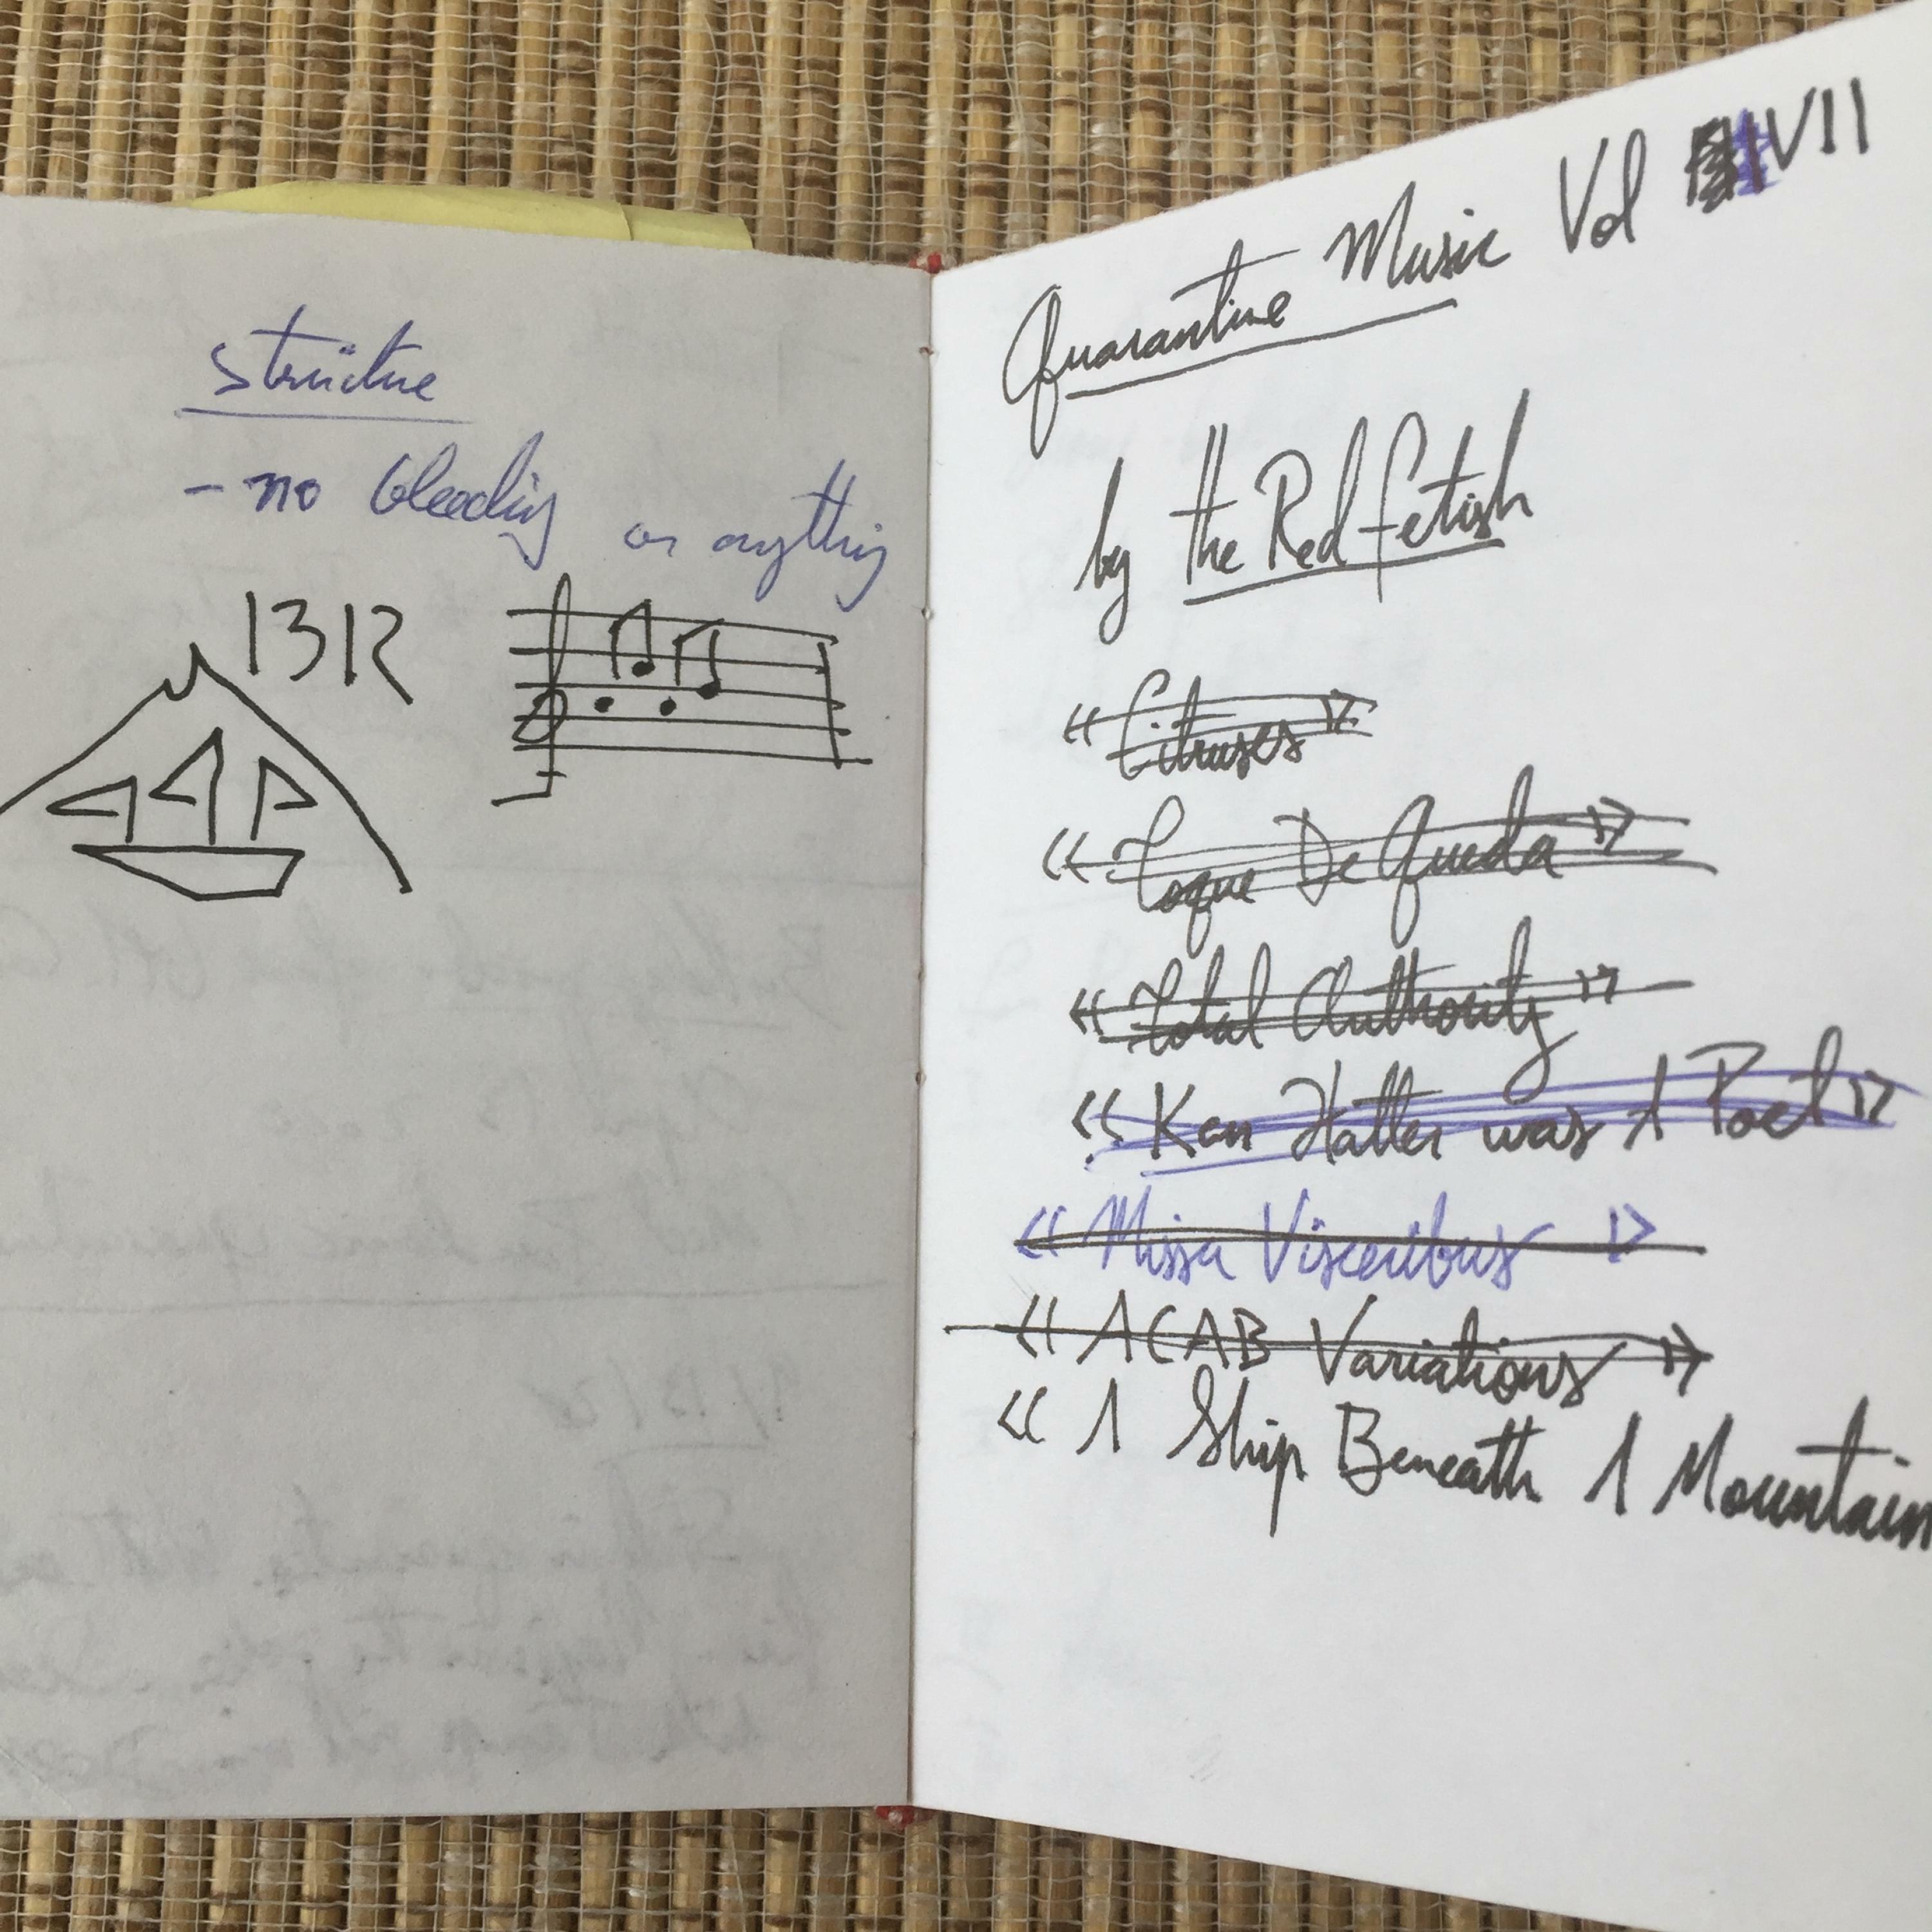 structure
- no bleeding or anything
1312
Quarantine Music Vol VII
by the Red Fetish
« Citruses »
« Toque De Queda »
« Total Authority »
« Ken Hatter was A Poet »
« Missa Visceribus »
« ACAB Variations »
« A Ship Beneath A Mountain